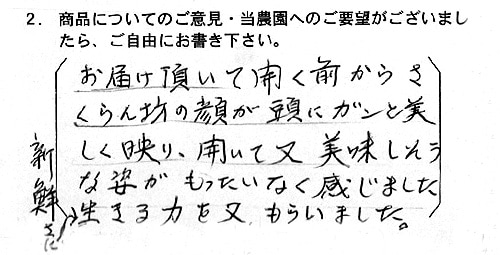 2. 商品についてのご意見・当農園へのご要望がございまし
たら、ご自由にお書き下さい。
お届け頂いて開く前からさ
くらん坊の顔が頭にガンと美
しく映り、開いて又美味しそう
な姿がもったいなく感じました
新鮮さに
生きる力を又、もらいました。